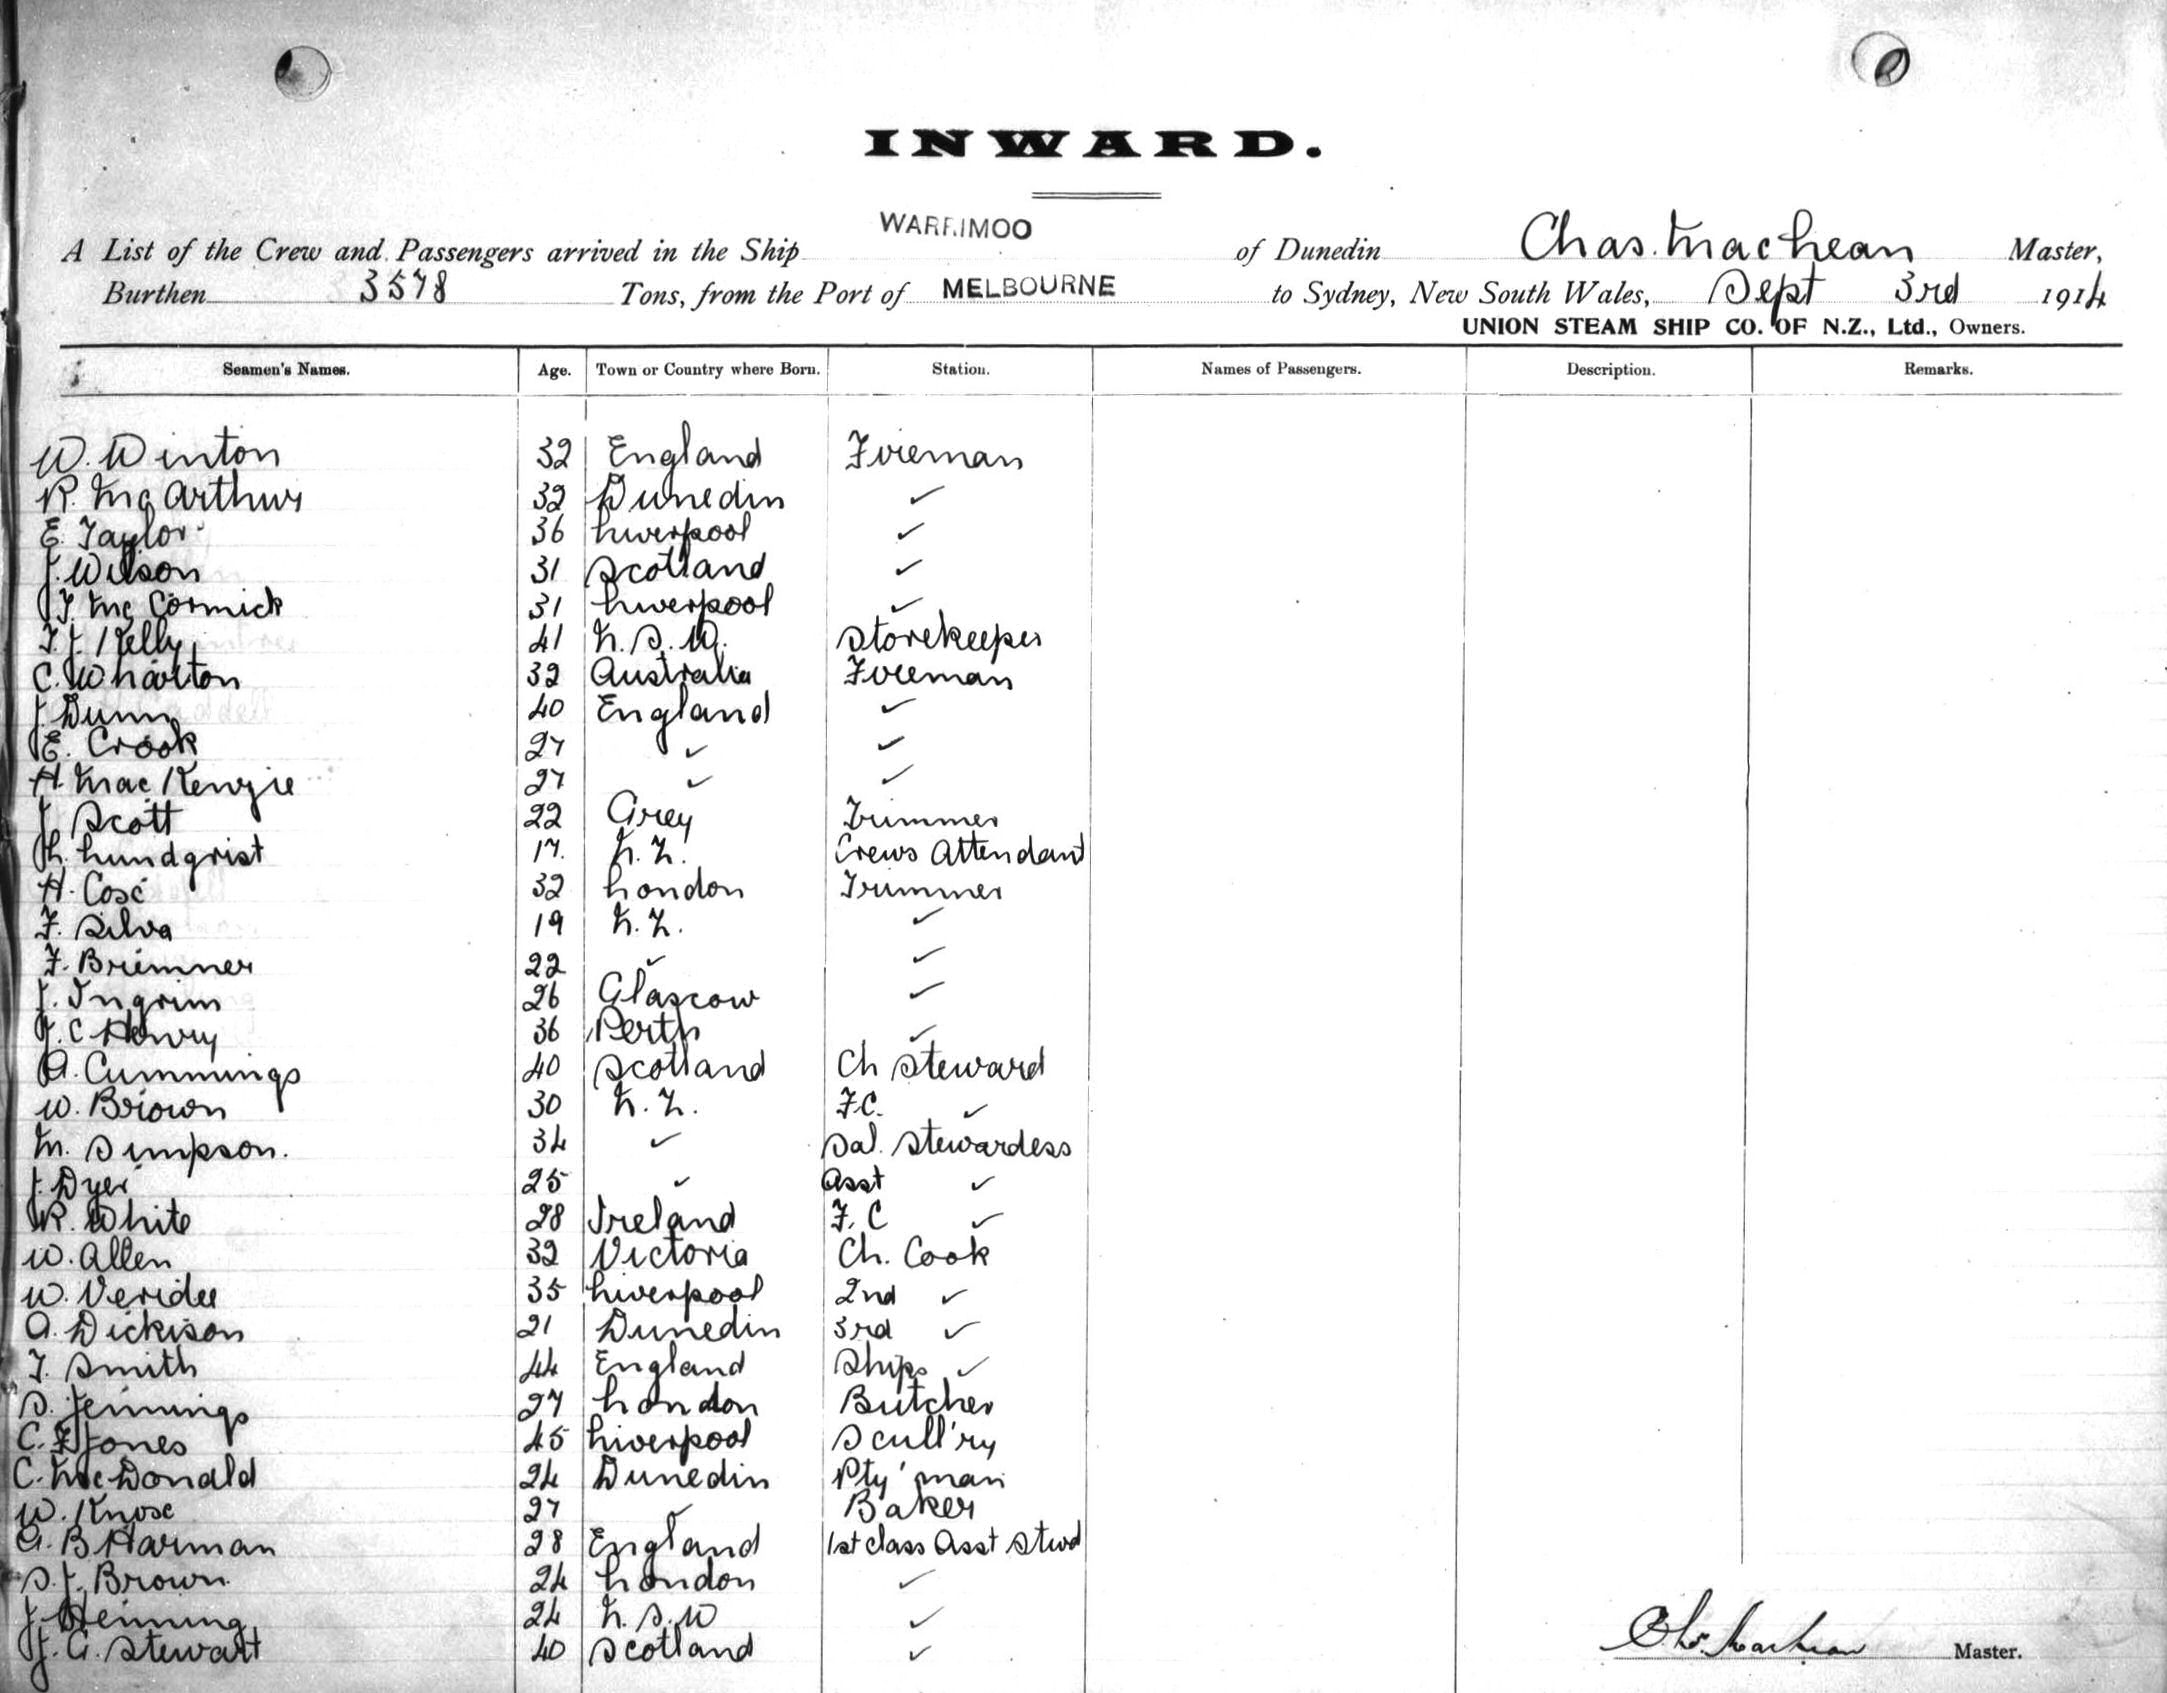 INWARD.
WARRIMOO
A List of the Crew and Passengers arrived in the Ship of Dunedin Chas. MacLean Master,
Burthen 3578 Tons, from the Port of MELBOURNE to Sydney, New South Wales, Sept 3rd 1914
UNION STEAM SHIP CO. OF N.Z., Ltd., Owners.
Seamen's Names. Age. Town or Country where Born. Station. Names of Passengers. Description. Remarks.
W. Winton 32 England Fireman
R. McArthur 32 Dunedin ✓
E. Taylor 36 Liverpool ✓
J. Wilson 31 Scotland ✓
J. McCormick 31 Liverpool ✓
T. J. Kelly 41 N.S.W. Storekeeper
C. Wharton 32 Australia Fireman
J. Dunn 40 England ✓
E. Crook 27 ✓ ✓
H. MacKenzie 27 ✓ ✓
J. Scott 22 Grey Trimmer
Lundqrist 17. N.Z. Crews Attendant
H. Cose 32 London Trimmer
F. Silva 19 N.Z. ✓
F. Brimner 22 ✓ ✓
J. Ingrim 26 Glascow ✓
J. C Henry 36 Perth ✓
A. Cummings 40 Scotland Ch Steward
W. Brown 30 N.Z. F.C. ✓
M. Simpson. 34 ✓ Sal. Stewardess
J. Dyer 25 ✓ Asst ✓
R. White 28 Ireland F.C ✓
W. Allen 32 Victoria Ch. Cook
W. Veridee 35 Liverpool 2nd ✓
A. Dickison 21 Dunedin 3rd ✓
T. Smith 44 England Ships ✓
S. Jennings 27 London Butcher
C. F Jones 45 Liverpool Scull'ry
C. McDonald 24 Dunedin Pty'man
W. Knose 27 ✓ Baker
G. B Harman 28 England 1st class Asst Stwd
S. J. Brown 24 London ✓
J. Henning 24 N.S.W ✓
J. G. Stewart 40 Scotland ✓
Chas. MacLean Master.